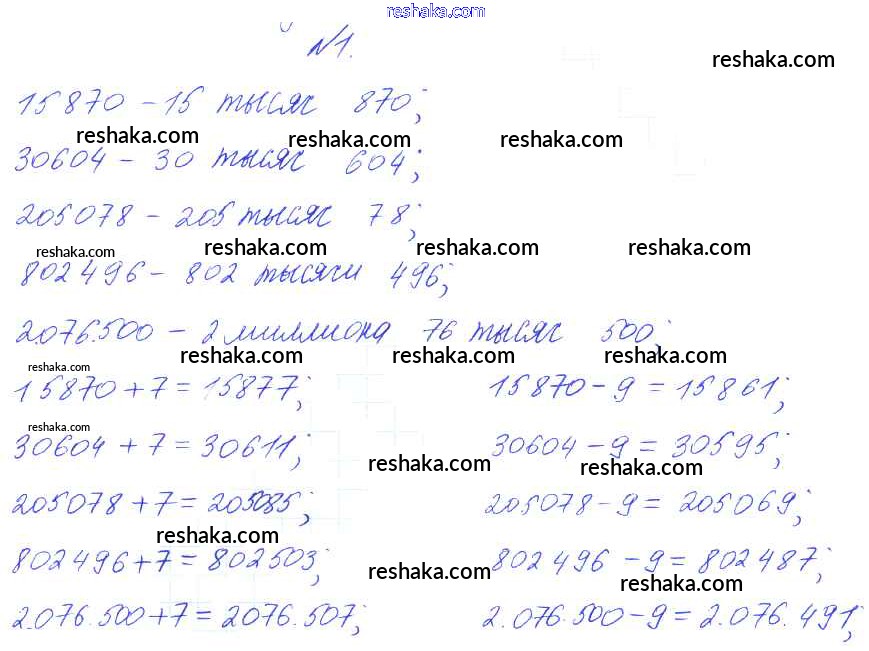 reshaka.com
№1.
reshaka.com
15870 – 15 тысяч 870;
reshaka.com reshaka.com reshaka.com
30604 – 30 тысяч 604;
205078 – 205 тысяч 78;
reshaka.com reshaka.com reshaka.com reshaka.com
802496 – 802 тысячи 496;
2.076.500 – 2 миллиона 76 тысяч 500;
reshaka.com reshaka.com reshaka.com reshaka.com
15870 + 7 = 15877; 15870 – 9 = 15861;
reshaka.com
30604 + 7 = 30611; 30604 – 9 = 30595;
reshaka.com reshaka.com
205078 + 7 = 205085; 205078 – 9 = 205069;
reshaka.com
802496 + 7 = 802503; 802496 – 9 = 802487;
reshaka.com reshaka.com
2.076.500 + 7 = 2076.507; 2.076.500 – 9 = 2.076.491;